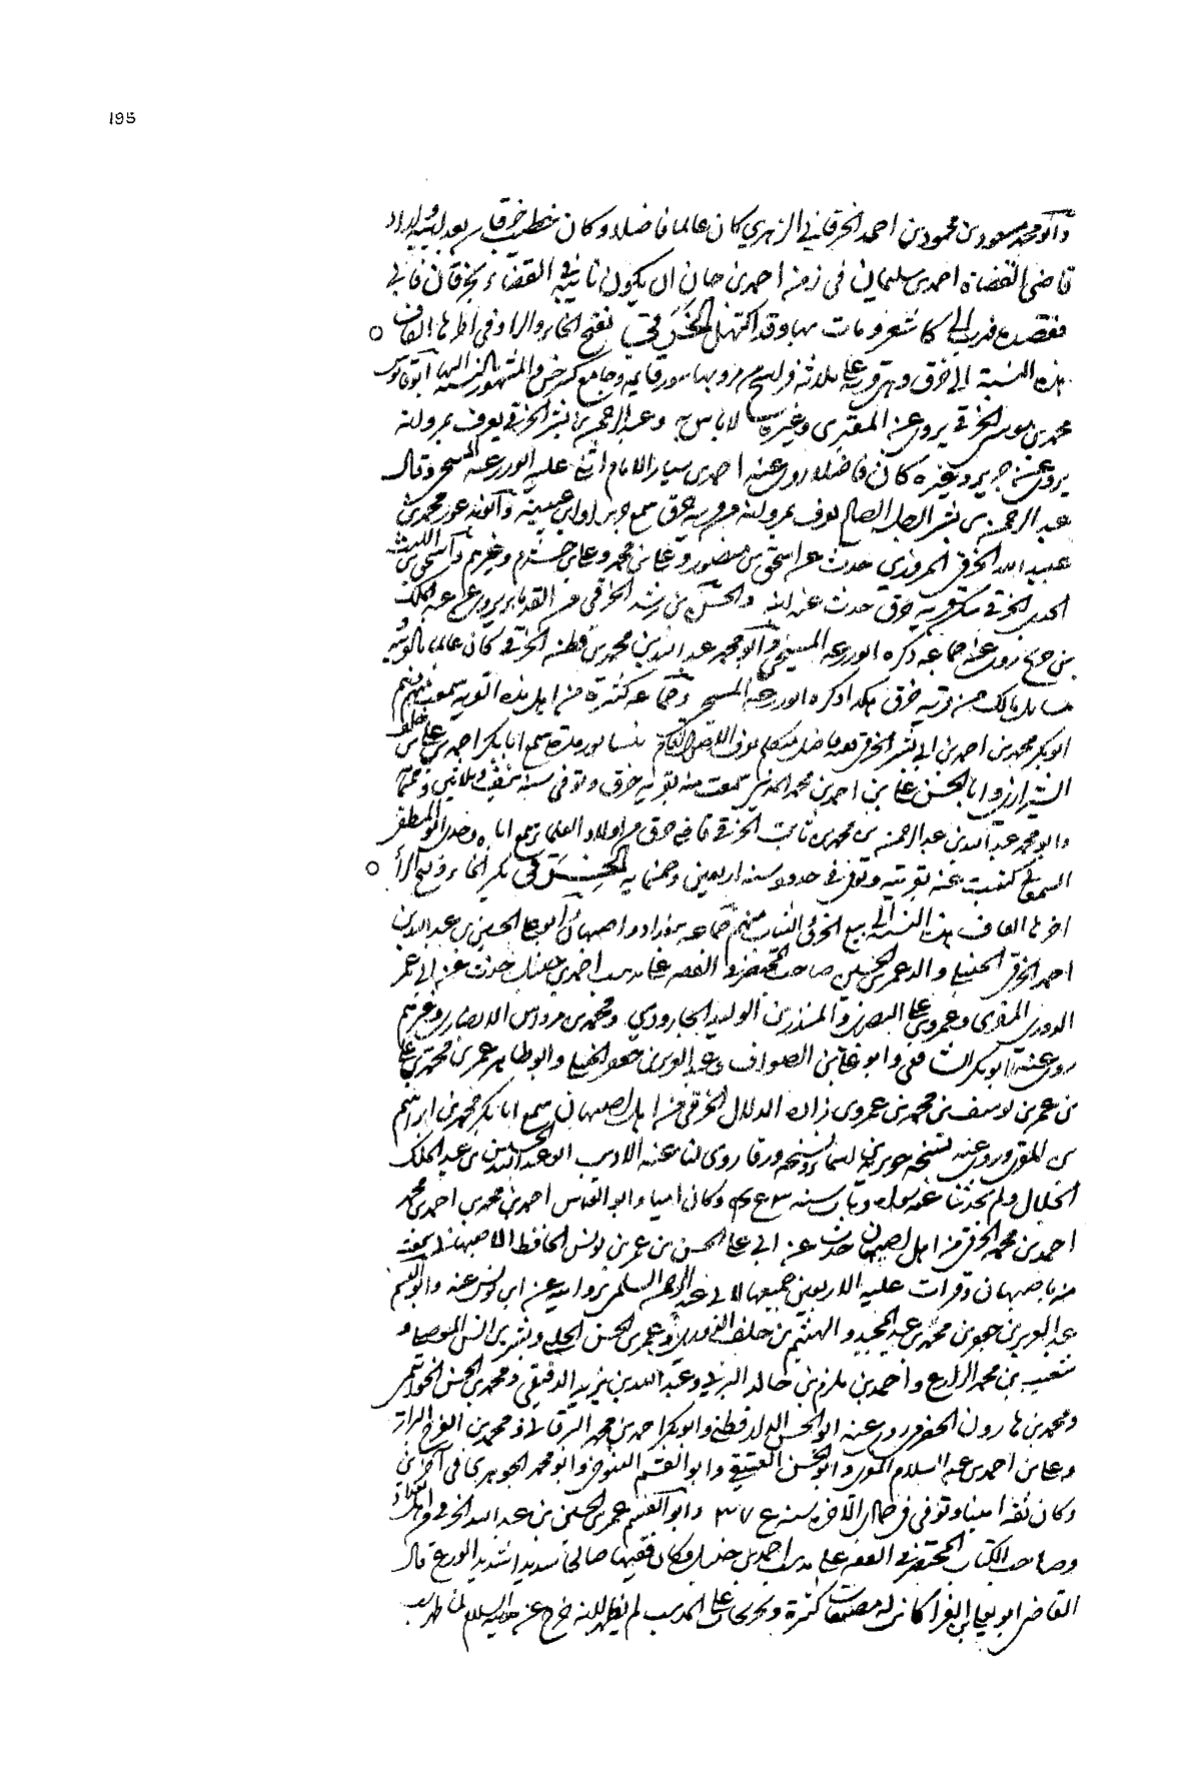 195
وابو محمد مسعود بن محمود بن احمد الخرقاني الزهري كان عالما فاضلا وكان خطيب خرقان بعد ابيه واراد
قاضي القضاة احمد بن سليمان في زمنه احمد بن خان ان يكون نائبه في القضاء بخرقان فابى
بها وقد اكتهل الخَرَقي بفتح الخاء والراء وفي اخرها القاف
هذه النسبة الى خرق وهي قرية على ثلاثة فراسخ من مرو بها سوق قائمة وجامع كبير حسن والمشهور بالنسبة اليها ابو قابوس
محمد بن موسى الخرقي يروي عن المقبري وغيره لا باس به وعبد الرحمن بن بشر الخرقي يعرف بمردانة
يروي عن جرير وغيره كان فاضلا روى عنه احمد بن سيار الامام اثنى عليه ابو زرعة السنجي وقال
عبد الرحمن بن بشر الرجل الصالح يعرف بمردانة من قرية خرق سمع جريرا وابن عيينة وابو محمد بن
عبيد الله الخرقي المروزي حدث عن اسحق بن منصور وعلي بن حجر وعلي بن خشرم وغيرهم واسحق بن الليث
الخرقي سكن قرية خرق حدث عن ابيه والحسن بن رشيد الخرقي من القدماء يروي عن عبد الملك
بن جريج روى عنه جماعة ذكره ابو زرعة السنجي وابو محمد عبد الله بن محمد بن قطنة الخرقي كان عالما
مسائل مالك من قرية خرق هكذا ذكره ابو زرعة السنجي وجماعة كثيرة من اهل هذه القرية سمعت منهم
ابو بكر محمد بن احمد بن ابي بشر الخرقي فقيه فاضل متكلم بنيسابور مدة سمع ابا بكر احمد بن علي بن خلف
الشيرازي وابا الحسن علي بن احمد بن محمد المديني سمعت منه بقرية خرق وتوفي سنة نيف وثلاثين وخمسمائة
وابو محمد عبد الله بن عبد الرحمن بن محمد بن ثابت الخرقي قاضي خرق من اولاد العلماء سمع اباه وجدي ابا المظفر
السمعاني كتبت عنه بقريته وتوفي في حدود سنة اربعين وخمسمائة الخِرَقي بكسر الخاء وفتح الراء
اخرها القاف هذه النسبة الى بيع الخرق والثياب منهم جماعة ببغداد واصبهان ابو علي الحسين بن عبد الله بن
احمد الخرقي الحنبلي والد عمر بن الحسين صاحب المختصر في الفقه على مذهب احمد بن حنبل حدث عن ابي عمر
الدوري المقرئ وعمرو بن علي البصري والمنذر بن الوليد الجارودي ومحمد بن مرداس الانصاري وغيرهم
روى عنه ابو بكر الشافعي وابو علي بن الصواف وعبد العزيز بن جعفر الحنبلي وابو طاهر عمر بن محمد بن علي
بن عمر بن يوسف بن محمد بن عمرو بن زاذان الدلال الخرقي من اهل اصبهان سمع ابا بكر محمد بن ابراهيم
بن المقرئ وروى عنه نسخة جويرية بن اسماء ونسخة ورقاء روى لنا عنه الاديب ابو عبد الله الحسين بن عبد الملك
الخلال ولم يحدثنا عنه سواه ومات سنة وكان اميا وابو العباس احمد بن محمد بن احمد بن محمد
احمد بن محمد الخرقي من اهل اصبهان حدث عن ابي علي الحسن بن عمر بن يونس الحافظ الاصبهاني سمعت
منه باصبهان وقرات عليه الاربعين جميعها لابي عبد الرحمن السلمي بروايته عن ابن يونس عنه وابو القسم
عبد العزيز بن جعفر بن محمد بن عبد الحميد والهيثم بن خلف الدوري وعمر بن الحسن الحلبي وبشر بن انس الموصلي و
شعيب بن محمد الذارع واحمد بن خالد البرتي وعبد الله بن يزيد الدقيقي ومحمد بن الحسن الخواتيمي
ومحمد بن هارون الحضرمي روى عنه ابو الحسن الدارقطني وابو بكر احمد بن محمد البرقاني ومحمد بن الفرج البزاز
وعلي بن احمد بن عبد السلام المقرئ وابو الحسن العتيقي وابو القسم التنوخي وابو محمد الجوهري في آخرين
وكان ثقة امينا وتوفي في جمادى الآخرة سنة وابو القسم عمر بن الحسين بن عبد الله الخرقي
وصاحب الكتاب المختصر في الفقه على مذهب احمد بن حنبل وكان فقيها صالحا سديدا شديد الورع قال
القاضي ابو يعلى ابن الفراء كانت له مصنفات كثيرة وتخريجات على المذهب لم تظهر لانه خرج عن مدينة السلام لما ظهر سب